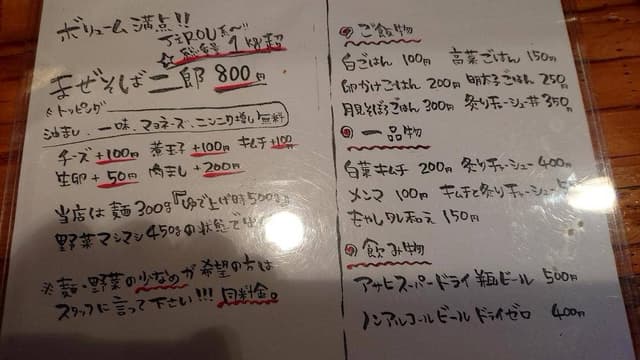 ボリューム満点!!
総重量1kg超
まぜそば二郎 800円
トッピング
油まし、一味、マヨネーズ、ニンニク増し 無料
チーズ+100円 煮玉子+100円 キムチ+100円
生卵+50円 肉まし+200円
当店は麺300g『ゆで上げ時500g』
野菜マシマシ450gの状態で
※麺・野菜の少なめが希望の方は
スタッフに言って下さい!!! 同料金。
ご飯物
白ごはん 100円 高菜ごはん 150円
卵かけごはん 200円 明太子ごはん 250円
月見そぼろごはん 300円 炙りチャーシュー丼 350円
一品物
白菜キムチ 200円 炙りチャーシュー 400円
メンマ 100円 キムチと炙りチャーシュー
もやしタレ和え 150円
飲み物
アサヒスーパードライ 瓶ビール 500円
ノンアルコールビール ドライゼロ 400円